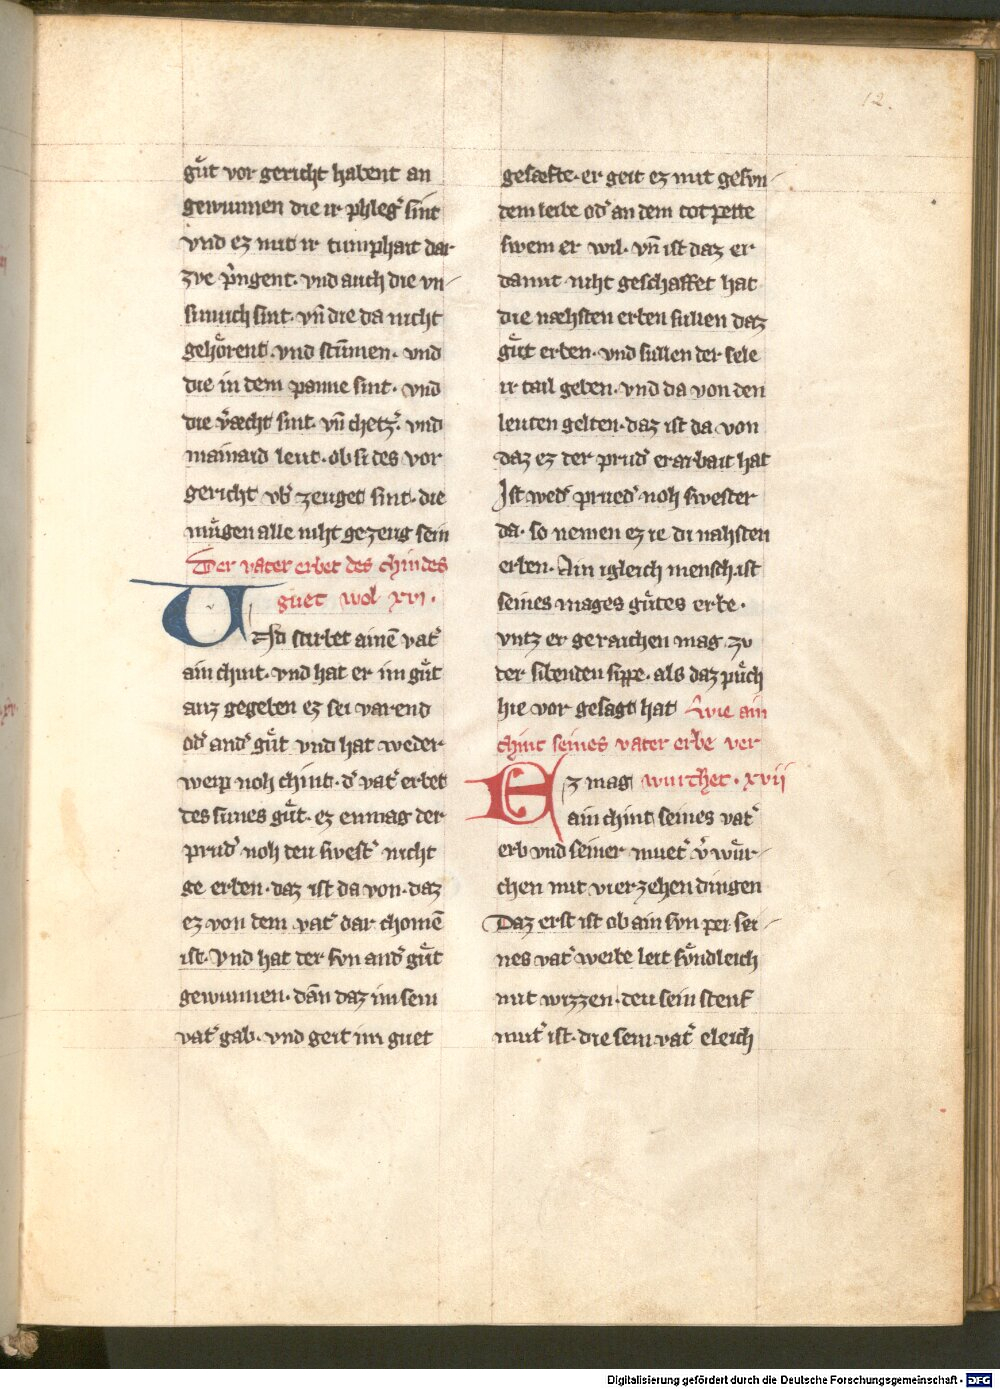 12.
gůt vor gericht habent an
gewunnen die ir phleg͛ sint
vnd ez mit ir tumphait dar
zve p͛ngent. vnd auch die vn-
sinnich sint. vn̄ die da nicht
gehörent. vnd stūmen. vnd
die in dem panne sint. vnd
die v͛æcht sint. vn̄ chetz͛. vnd
mainaid leut. ob si des vor
gericht vb͛ zeuget sint. die
mügen alle niht gezeug sein
Der vater erbet des chindes
guet wol xvi.
Vnd stirbet ainē vat͛
ain chint. vnd hat er im gůt
auz gegeben ez sei varend
od͛ and͛ gůt vnd hat weder
weip noh chint. d͛ vat͛ erbet
des sunes gůt. ez enmag der
prud͛ noh deu swest͛ nicht
ge erben. daz ist da von. daz
ez von dem vat͛ dar chomē
ist. Vnd hat der svn and͛ gůt
gewunnen. dān daz im sein
vat͛ gab. vnd geit im guet
geschefte. er geit ez mit gesvn-
dem leibe od͛ an dem tot pette
swem er wil. vn̄ ist daz er
damit niht geschaffet hat
die næhsten erben sullen daz
gůt erben. vnd sullen der sele
ir tail geben. vnd da von den
leuten gelten. daz ist da von
daz ez der prud͛ erarbait hat
Ist wed͛ prued͛ noh swester
da. so nemen ez ie di nahsten
erben. Ain igleich mensch ist
seines mages gůtes erbe.
vntz er geraichen mag zv
der sibenden sippe. als daz půch
hie vor gesagt hat Wie ain
chint seines vater erbe ver
Ez mag wurchet. xvii
ain chint seines vat͛
erb vnd seiner muet͛ v͛wůr-
chen mit vierzehen dingen
Daz erst ist ob ain svn pei sei-
nes vat͛ weibe leit sündleich
mit wizzen. deu sein steuf
mut͛ ist. die sein vat͛ eleich
Digitalisierung gefördert durch die Deutsche Forschungsgemeinschaft - DFG